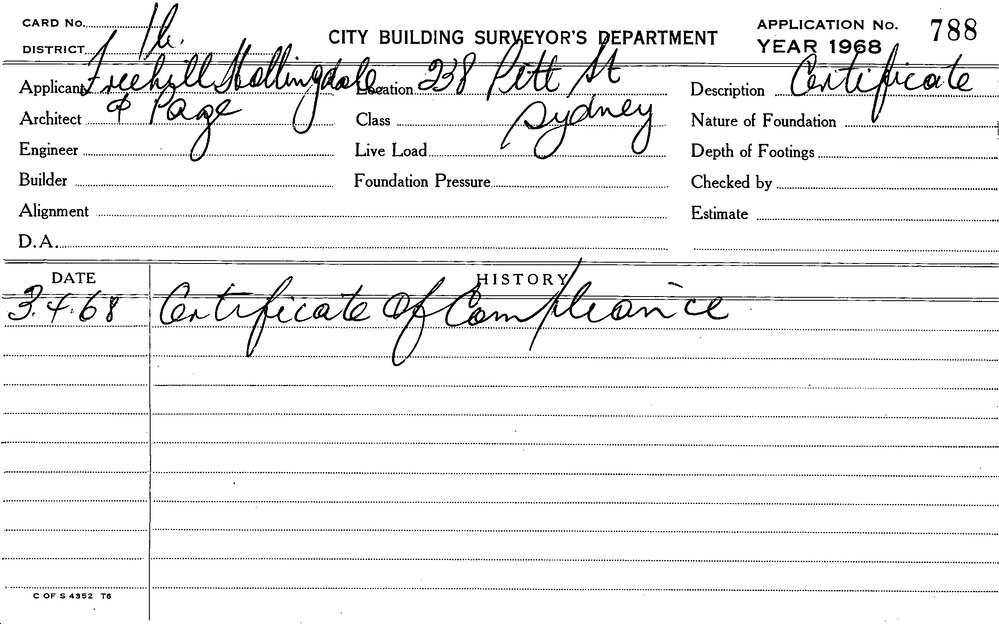 CARD No.
DISTRICT
CITY BUILDING SURVEYOR'S DEPARTMENT
APPLICATION No. 788
YEAR 1968
Applicant Freehill Hollingdale
& Page
Location 238 Pitt St
Sydney
Description Certificate
Architect
Class
Nature of Foundation
Engineer
Live Load
Depth of Footings
Builder
Foundation Pressure
Checked by
Alignment
Estimate
D.A.
DATE HISTORY
3.4.68 Certificate of Compliance
C OF S 4352 T6